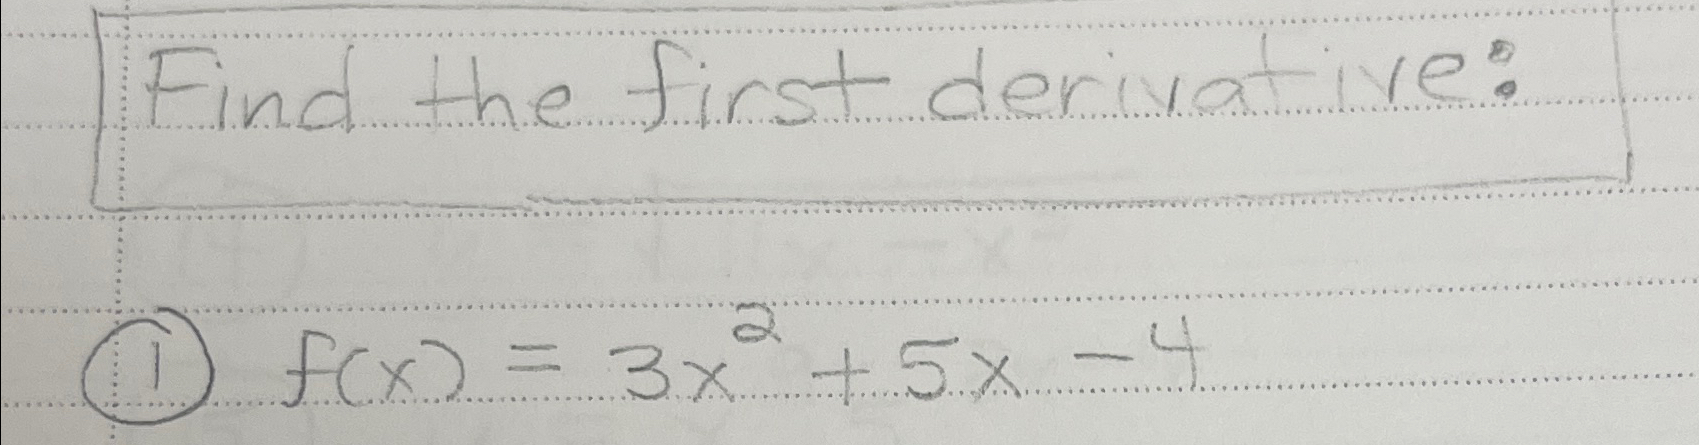 Find the first derivative:
① f(x) = 3x² + 5x - 4